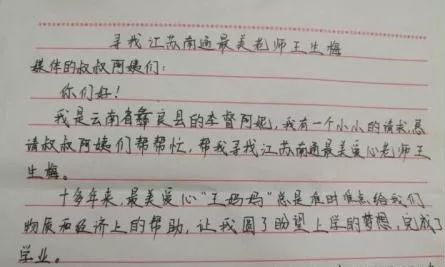 寻找江苏南通最美老师王生梅
媒体的叔叔阿姨们：
你们好！
我是云南省彝良县的李督阿妮，我有一个小小的请求，恳
请叔叔阿姨们帮帮忙，帮我寻找江苏南通最美爱心老师王
生梅。
十多年来，最美爱心“王妈妈”总是准时准点给我们
物质和经济上的帮助，让我圆了盼望上学的梦想，完成了
学业。